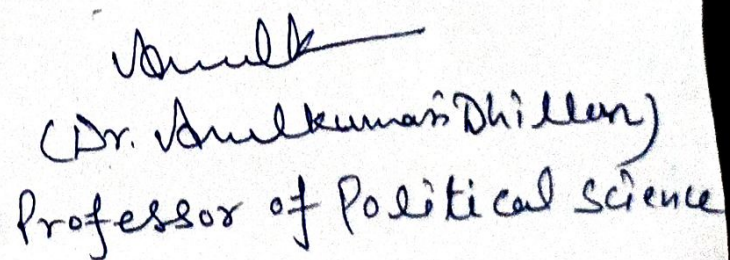 (Dr. Anulkumari Dhillon)
Professor of Political Science